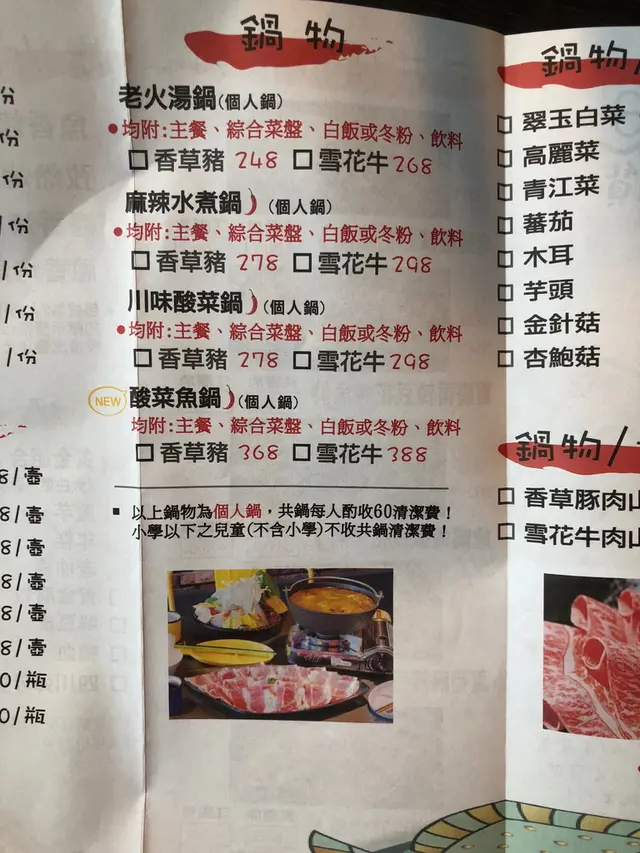 份
份
份
/份
/份
/份
/份
8/壺
8/壺
8/壺
8/壺
8/壺
8/壺
0/瓶
0/瓶
鍋物
老火湯鍋(個人鍋)
●均附:主餐、綜合菜盤、白飯或冬粉、飲料
□香草豬 248 □雪花牛 268
麻辣水煮鍋 (個人鍋)
●均附:主餐、綜合菜盤、白飯或冬粉、飲料
□香草豬 278 □雪花牛 298
川味酸菜鍋 (個人鍋)
●均附:主餐、綜合菜盤、白飯或冬粉、飲料
□香草豬 278 □雪花牛 298
NEW 酸菜魚鍋 (個人鍋)
均附:主餐、綜合菜盤、白飯或冬粉、飲料
□香草豬 368 □雪花牛 388
▪ 以上鍋物為個人鍋，共鍋每人酌收60清潔費！
小學以下之兒童(不含小學)不收共鍋清潔費！
鍋物/
□ 翠玉白菜
□ 高麗菜
□ 青江菜
□ 蕃茄
□ 木耳
□ 芋頭
□ 金針菇
□ 杏鮑菇
鍋物/
□ 香草豚肉山
□ 雪花牛肉山